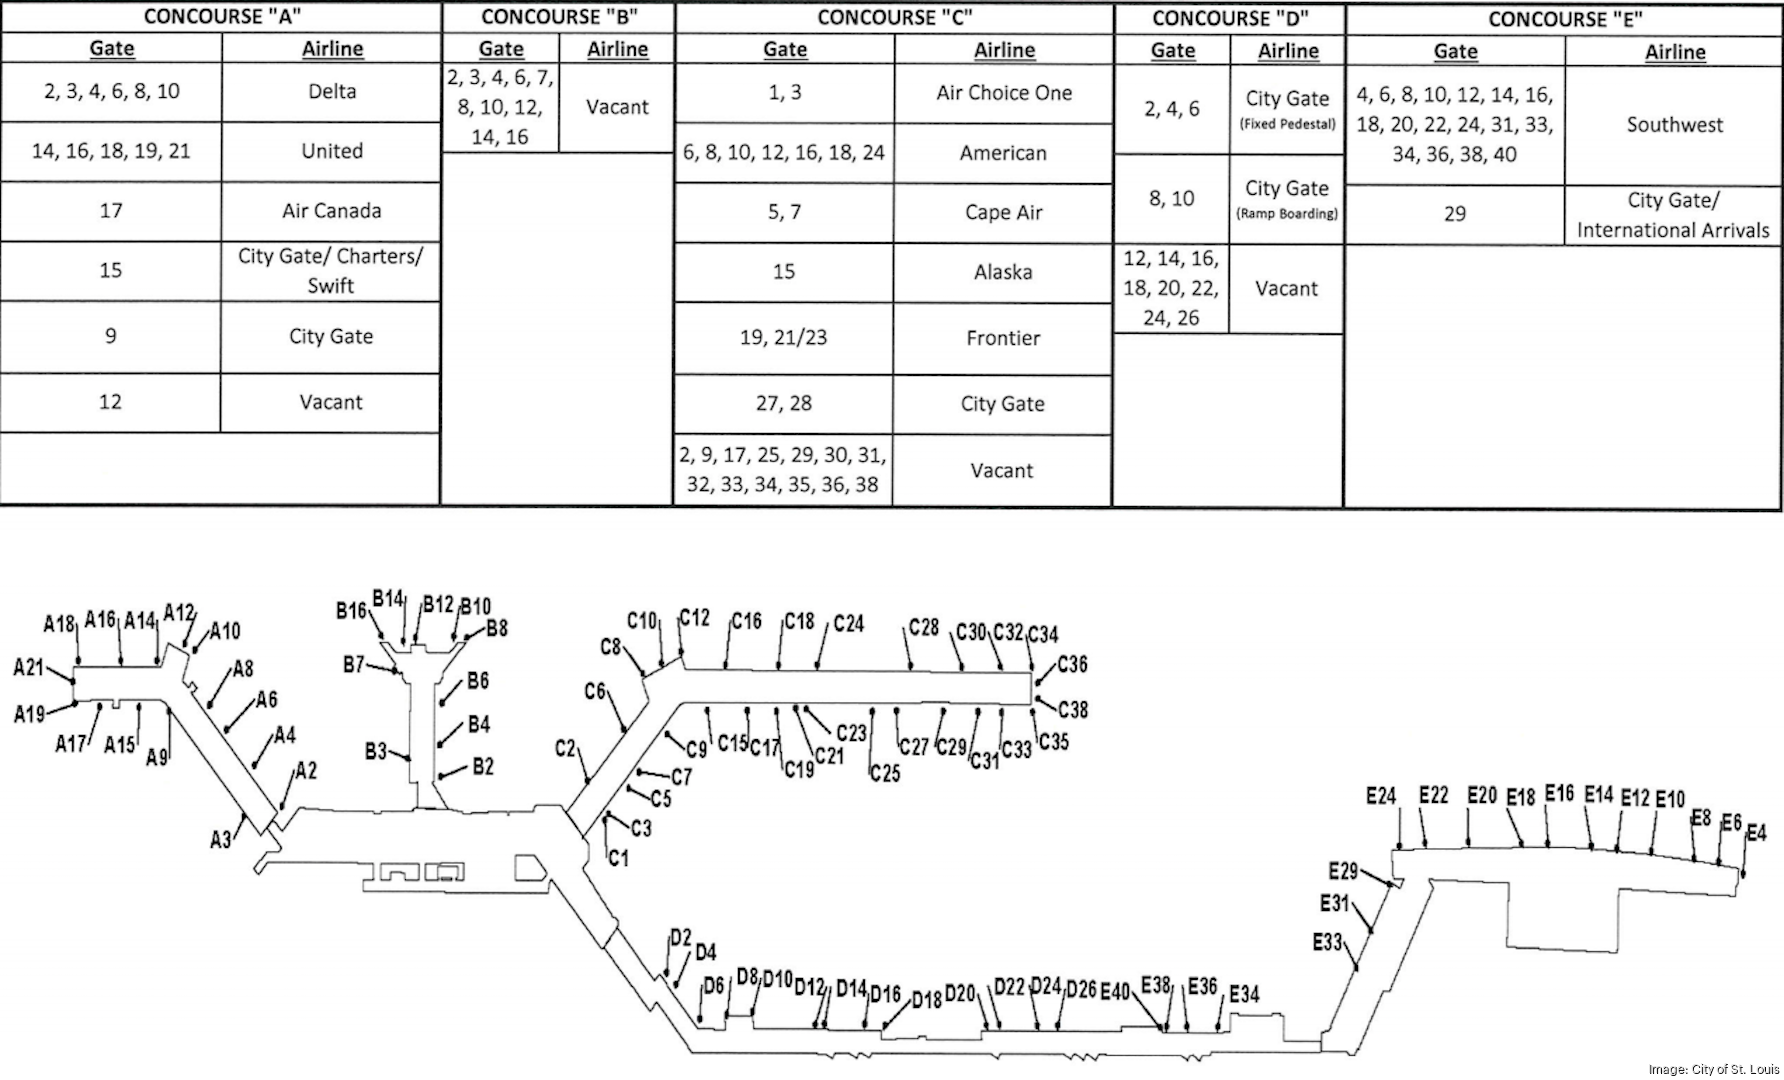 CONCOURSE "A"
Gate Airline
2, 3, 4, 6, 8, 10 Delta
14, 16, 18, 19, 21 United
17 Air Canada
15 City Gate/ Charters/
Swift
9 City Gate
12 Vacant
CONCOURSE "B"
Gate Airline
2, 3, 4, 6, 7,
8, 10, 12,
14, 16
Vacant
CONCOURSE "C"
Gate Airline
1, 3 Air Choice One
6, 8, 10, 12, 16, 18, 24 American
5, 7 Cape Air
15 Alaska
19, 21/23 Frontier
27, 28 City Gate
2, 9, 17, 25, 29, 30, 31,
32, 33, 34, 35, 36, 38
Vacant
CONCOURSE "D"
Gate Airline
2, 4, 6
City Gate
(Fixed Pedestal)
8, 10
City Gate
(Ramp Boarding)
12, 14, 16,
18, 20, 22,
24, 26
Vacant
CONCOURSE "E"
Gate Airline
4, 6, 8, 10, 12, 14, 16,
18, 20, 22, 24, 31, 33,
34, 36, 38, 40
Southwest
29
City Gate/
International Arrivals
A18 A16 A14 A12
A10
A21
A8
A6
A19
A17 A15 A9
A4
A2
A3
B16 B14 B12 B10
B8
B7
B6
B4
B3
B2
C10 C12 C16 C18 C24 C28 C30 C32 C34
C8
C36
C6
C38
C2
C9 C15 C17 C19 C21 C23 C25 C27 C29 C31 C33 C35
C7
C5
C3
C1
D2
D4
D6
D8 D10 D12 D14 D16 D18 D20 D22 D24 D26 E40 E38 E36 E34
E24 E22 E20 E18 E16 E14 E12 E10 E8 E6 E4
E29
E31
E33
Image: City of St. Louis